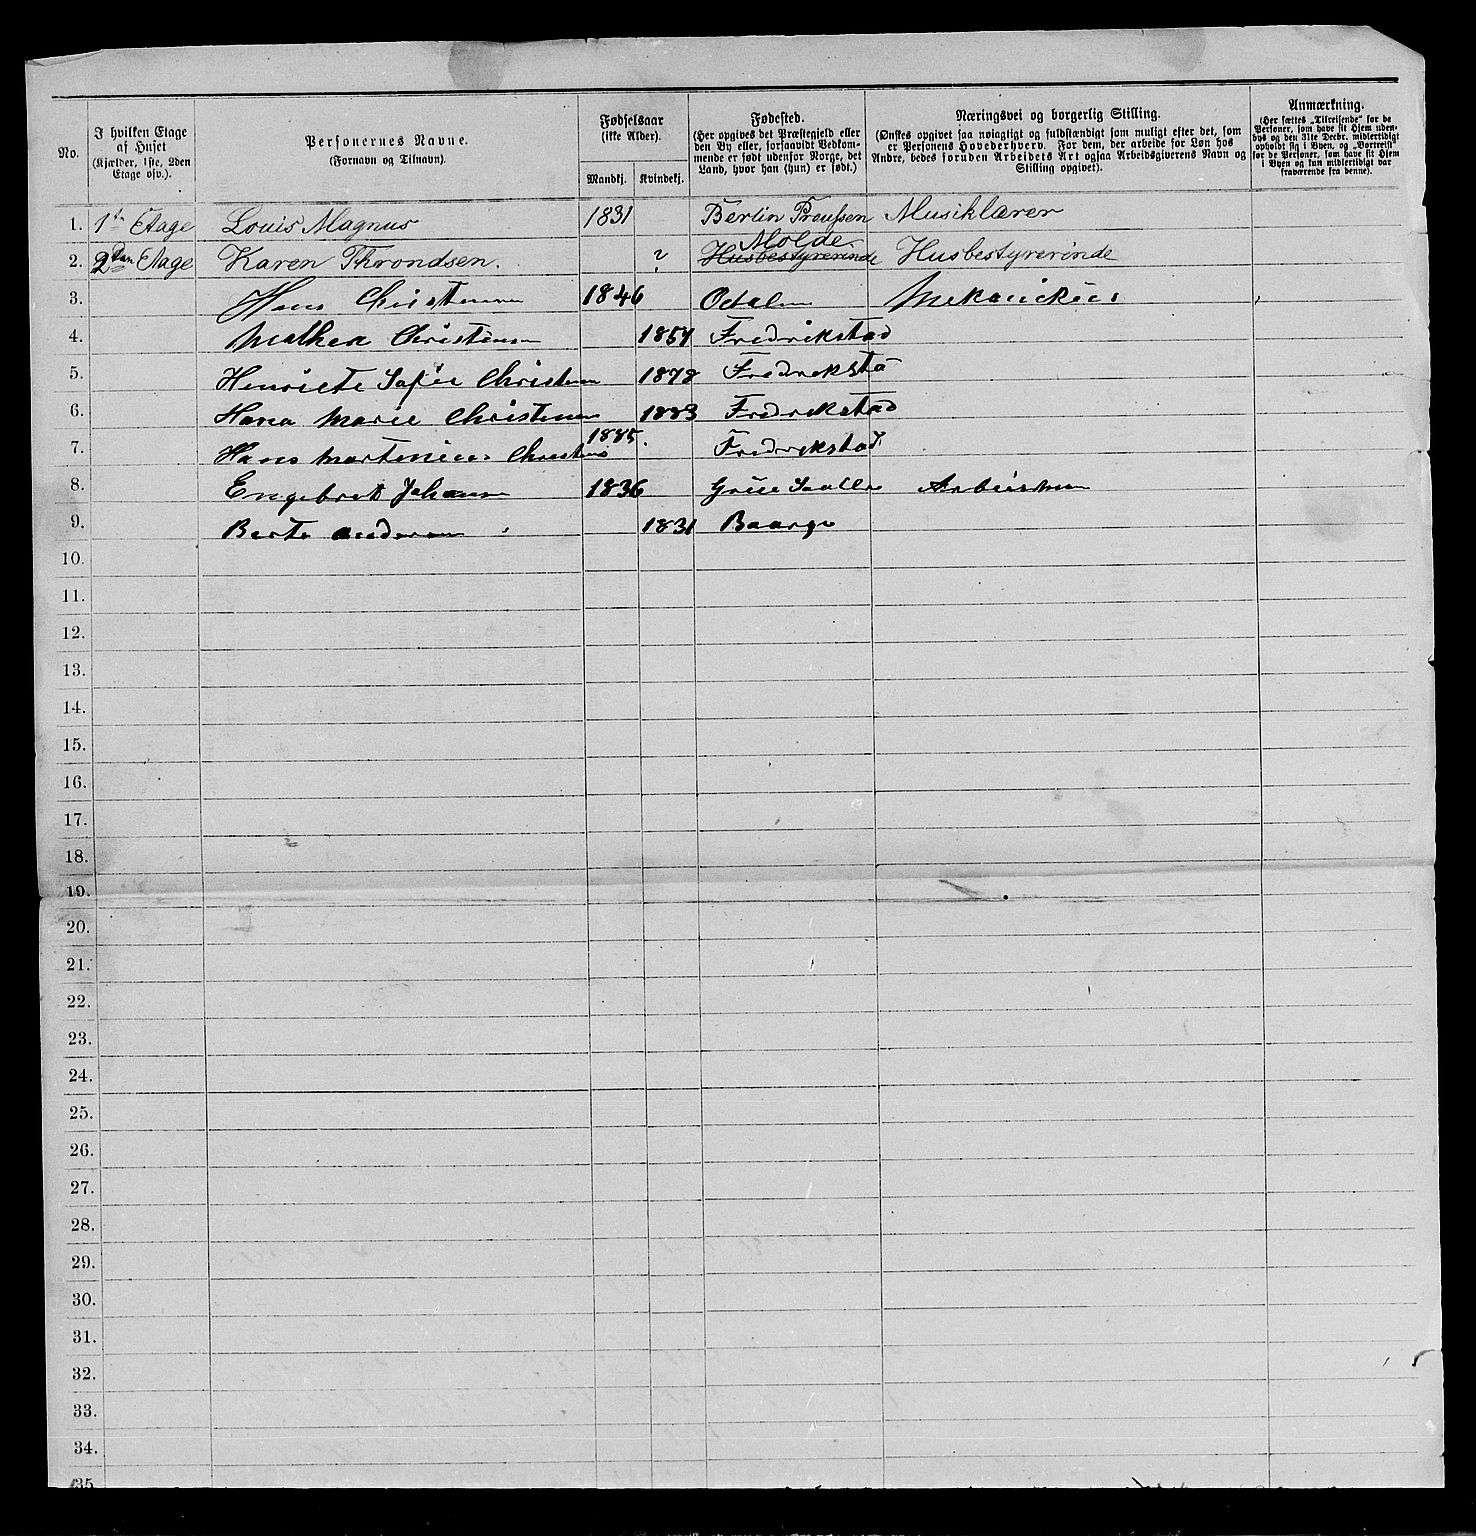 No.
I hvilken Etage af Huset (Kjælder, 1ste, 2den Etage osv.).
Personernes Navne. (Fornavn og Tilnavn).
Fødselsaar (ikke Alder).
Mandkj. Kvindekj.
Fødested. (Her opgives det Præstegjeld eller den By eller, forsaavidt Vedkommende er født udenfor Norge, det Land, hvor han (hun) er født.)
Næringsvei og borgerlig Stilling. (Ønskes opgivet saa nøiagtigt og fuldstændigt som muligt efter det, som er Personens Hovederhverv. For dem, der arbeide for Løn hos Andre, bedes foruden Arbeidets Art ogsaa Arbeidsgiverens Navn og Stilling opgivet).
Anmærkning. (Her sættes „Tilreisende“ for de Personer, som have sit Hjem udenbys og den 31te Decbr. midlertidigt opholdt sig i Byen, og „Bortreist“ for de Personer, som have sit Hjem i Byen og kun midlertidigt var fraværende fra denne).
1. 1ste Etage Louis Magnus 1831 Berlin Preussen Musiklærer
2. 2den Etage Karen Throndsen. ? Husbestyrerinde Molde Husbestyrerinde
3. Hans Christensen 1846 Odalen Mekanickus
4. Mathea Christensen 1857 Fredrikstad
5. Henriete Sofie Christensen 1878 Fredrekstad
6. Hana Marie Christensen 1883 Fredrekstad
7. Hans Martenius Christens 1885. Fredrekstad
8. Engebret Johansen 1836 Grue Arbeisman
9. Berte Andersen 1831 Baarge
10.
11.
12.
13.
14.
15.
16.
17.
18.
19.
20.
21.
22.
23.
24.
25.
26.
27.
28.
29.
30.
31.
32.
33.
34.
35